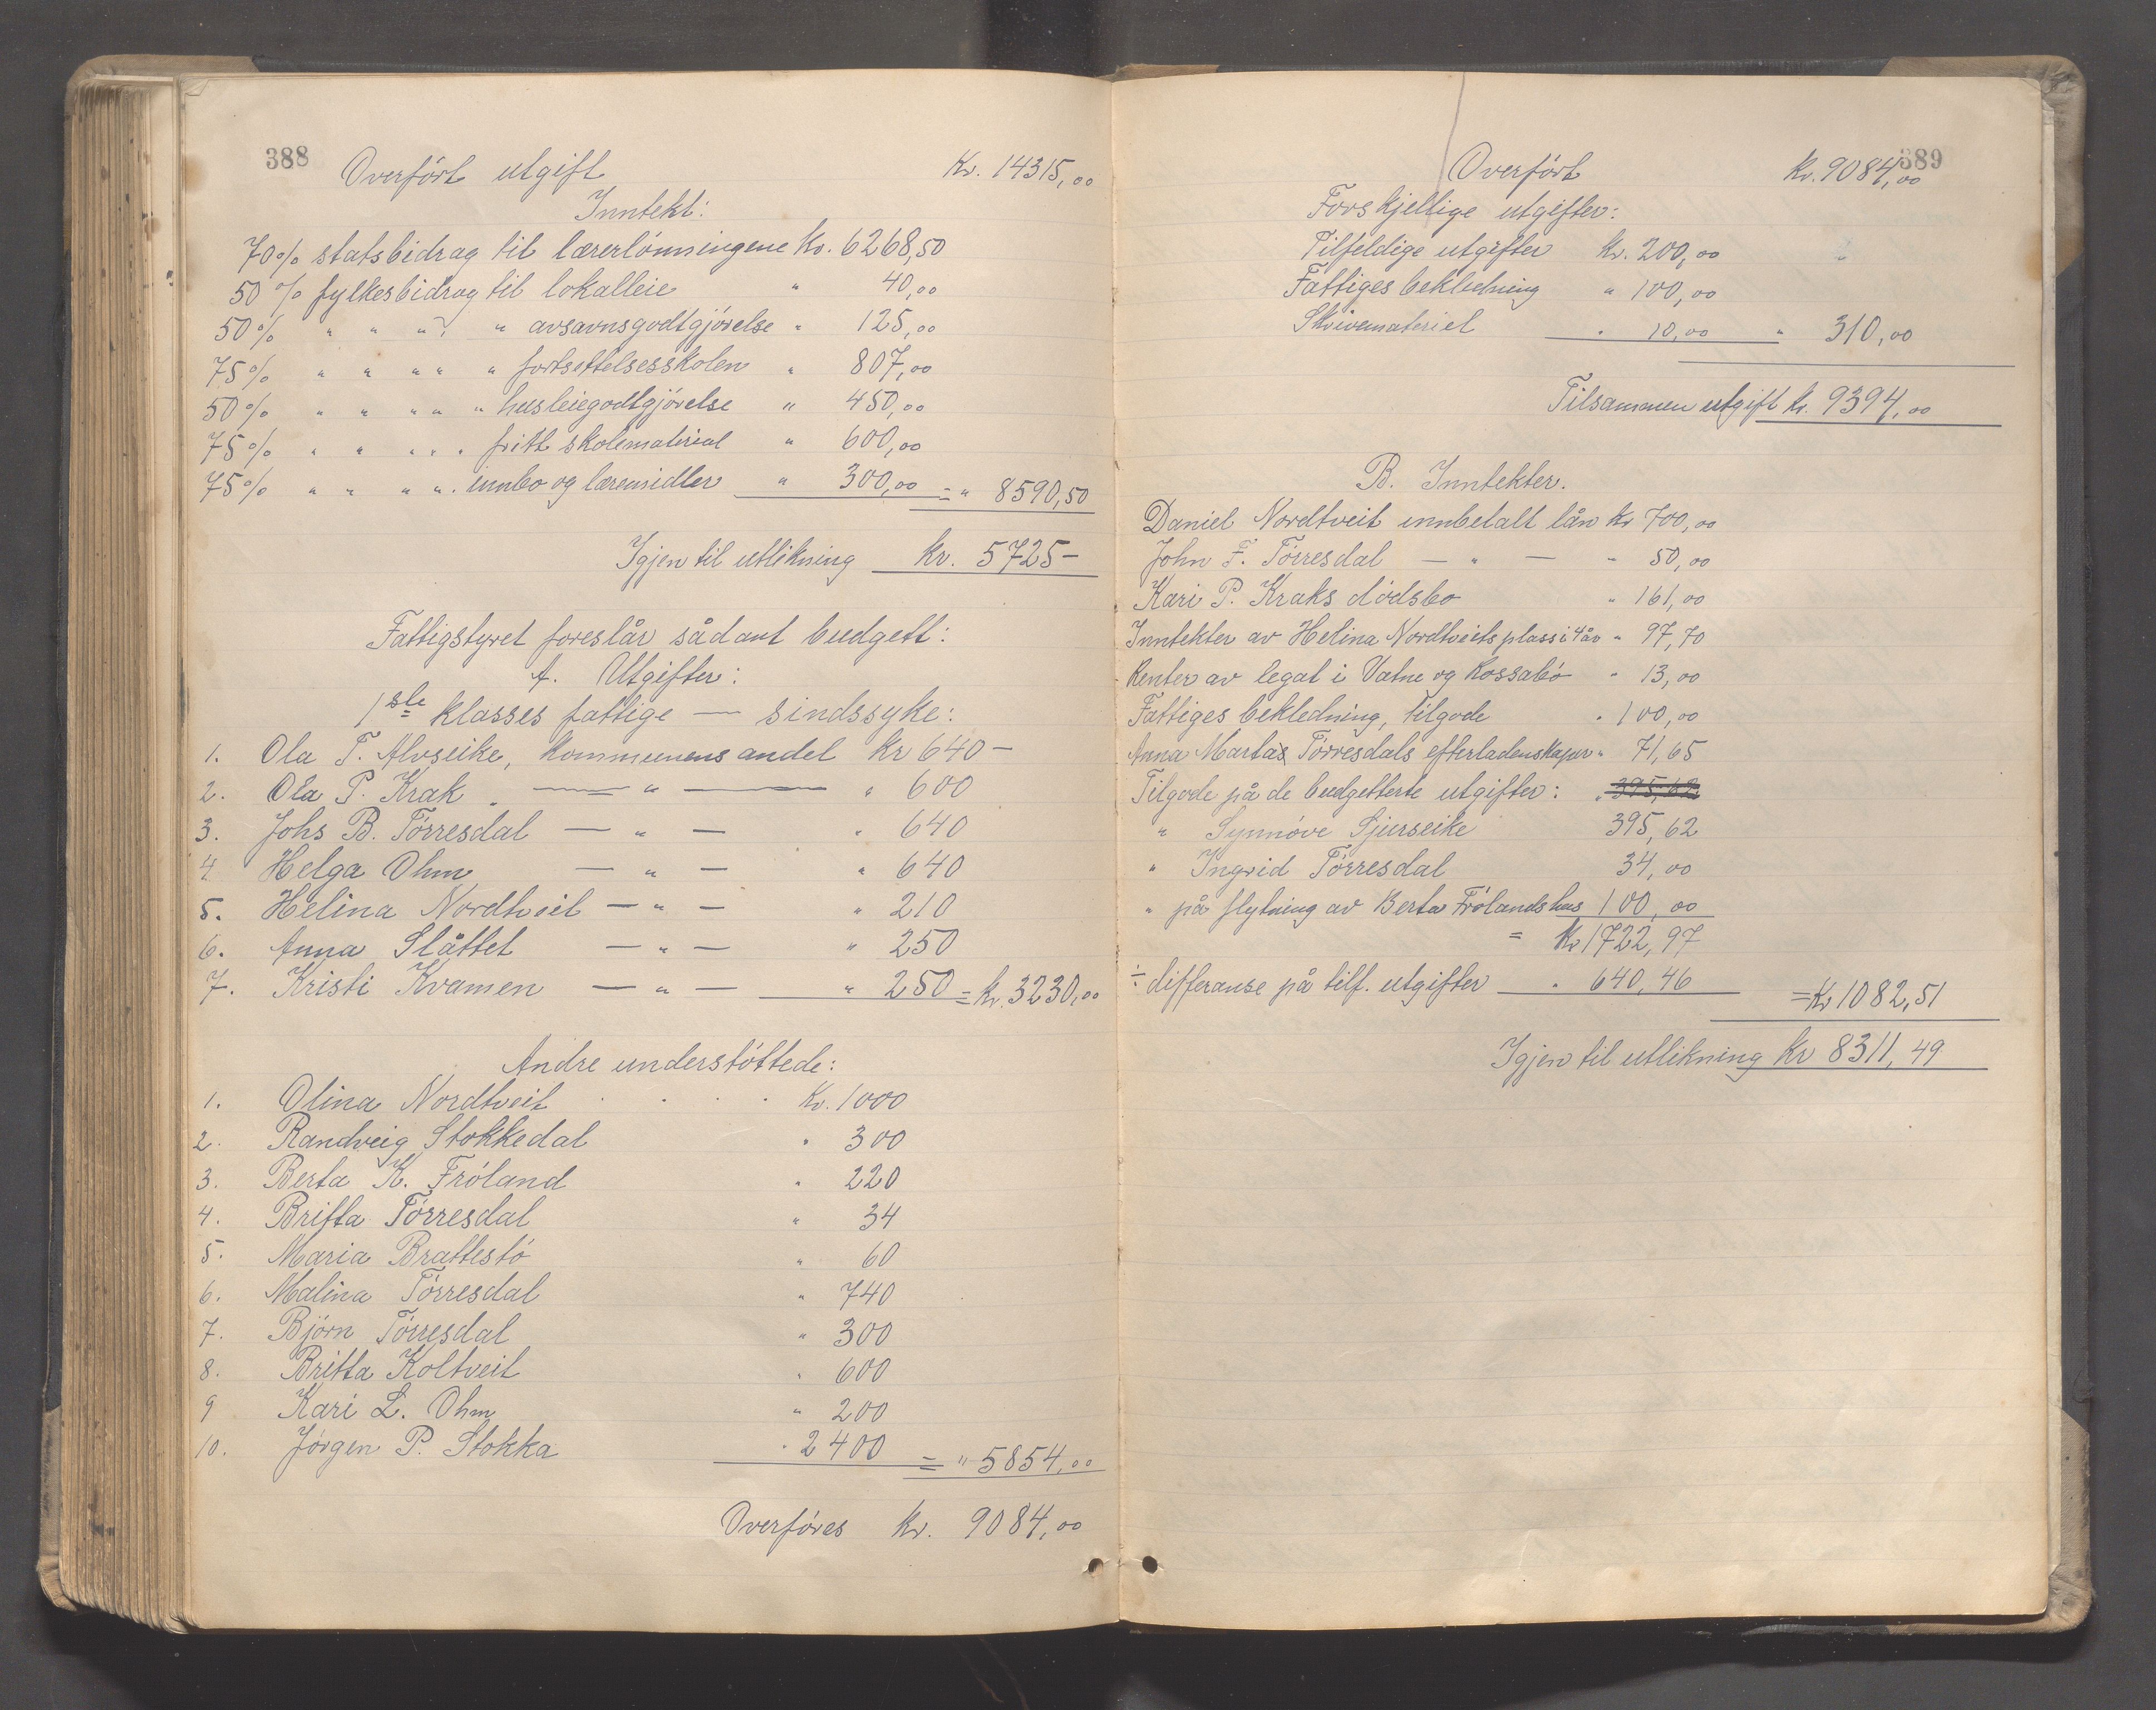 388
Overført utgift Kr. 14315,00
Inntekt:
70% statsbidrag til lærerlønningene Kr. 6268,50
50% fylkesbidrag til lokalleie " 40,00
50% " " " " avsavnsgodtgjørelse " 125,00
75% " " " " " fortsettelsesskolen " 807,00
50% " " " " " husleiegodtgjørelse " 450,00
75% " " " " " fritt skolematerial " 600,00
75% " " " " innbo og læremidler " 300,00 = " 8590,50
Igjen til utlikning kr. 5725-
Fattigstyret foreslår sådant budgett:
A. Utgifter:
1ste klasses fattige — sindssyke:
1. Ola T. Alvseike, kommunens andel Kr 640-
2. Ola P. Krak — " — " 600
3. Johs B. Tørresdal — " — " 640
4 Helga Ohm — " — " 640
5. Helina Nordtveit — " — " 210
6. Anna Slåttet — " — " 250
7. Kristi Kvamen — " — " 250 = kr. 3230,00
Andre understøttede:
1. Olina Nordtveit . . . . Kr. 1000
2. Randveig Stokkedal " 300
3. Berta K. Frøland " 220
4. Britta Tørresdal " 34
5. Maria Brattestø " 60
6. Malina Tørresdal " 740
7. Bjørn Tørresdal " 300
8. Britta Koltveit " 600
9 Kari L. Ohm " 200
10. Jørgen P. Stokka " 2400 = " 5854,00
Overføres kr. 9084,00
389
Overført kr. 9084,00
Forskjellige utgifter:
Tilfeldige utgifter Kr. 200,00
Fattiges bekledning " 100,00
Skrivemateriel " 10,00 " 310,00
Tilsammen utgift kr. 9394,00
B. Inntekter.
Daniel Nordtveit innbetalt lån Kr 700,00
John F. Tørresdal — " — " 50,00
Kari P. Kraks dødsbo " 161,00
Inntekter av Helina Nordtveits plass i 4 år " 97,70
Renter av legat i Vatne og Rossabø " 13,00
Fattiges bekledning, tilgode " 100,00
Anna Martas Tørresdals efterladenskaper " 71,65
Tilgode på de budgetterte utgifter: " 395,62
" Synnøve Sjurseike 395,62
" Ingrid Tørresdal 34,00
" på flytning av Berta Frølands hus 100,00
= Kr 1722,97
÷ differanse på tilf. utgifter " 640,46 = Kr 1082,51
Igjen til utlikning Kr 8311,49